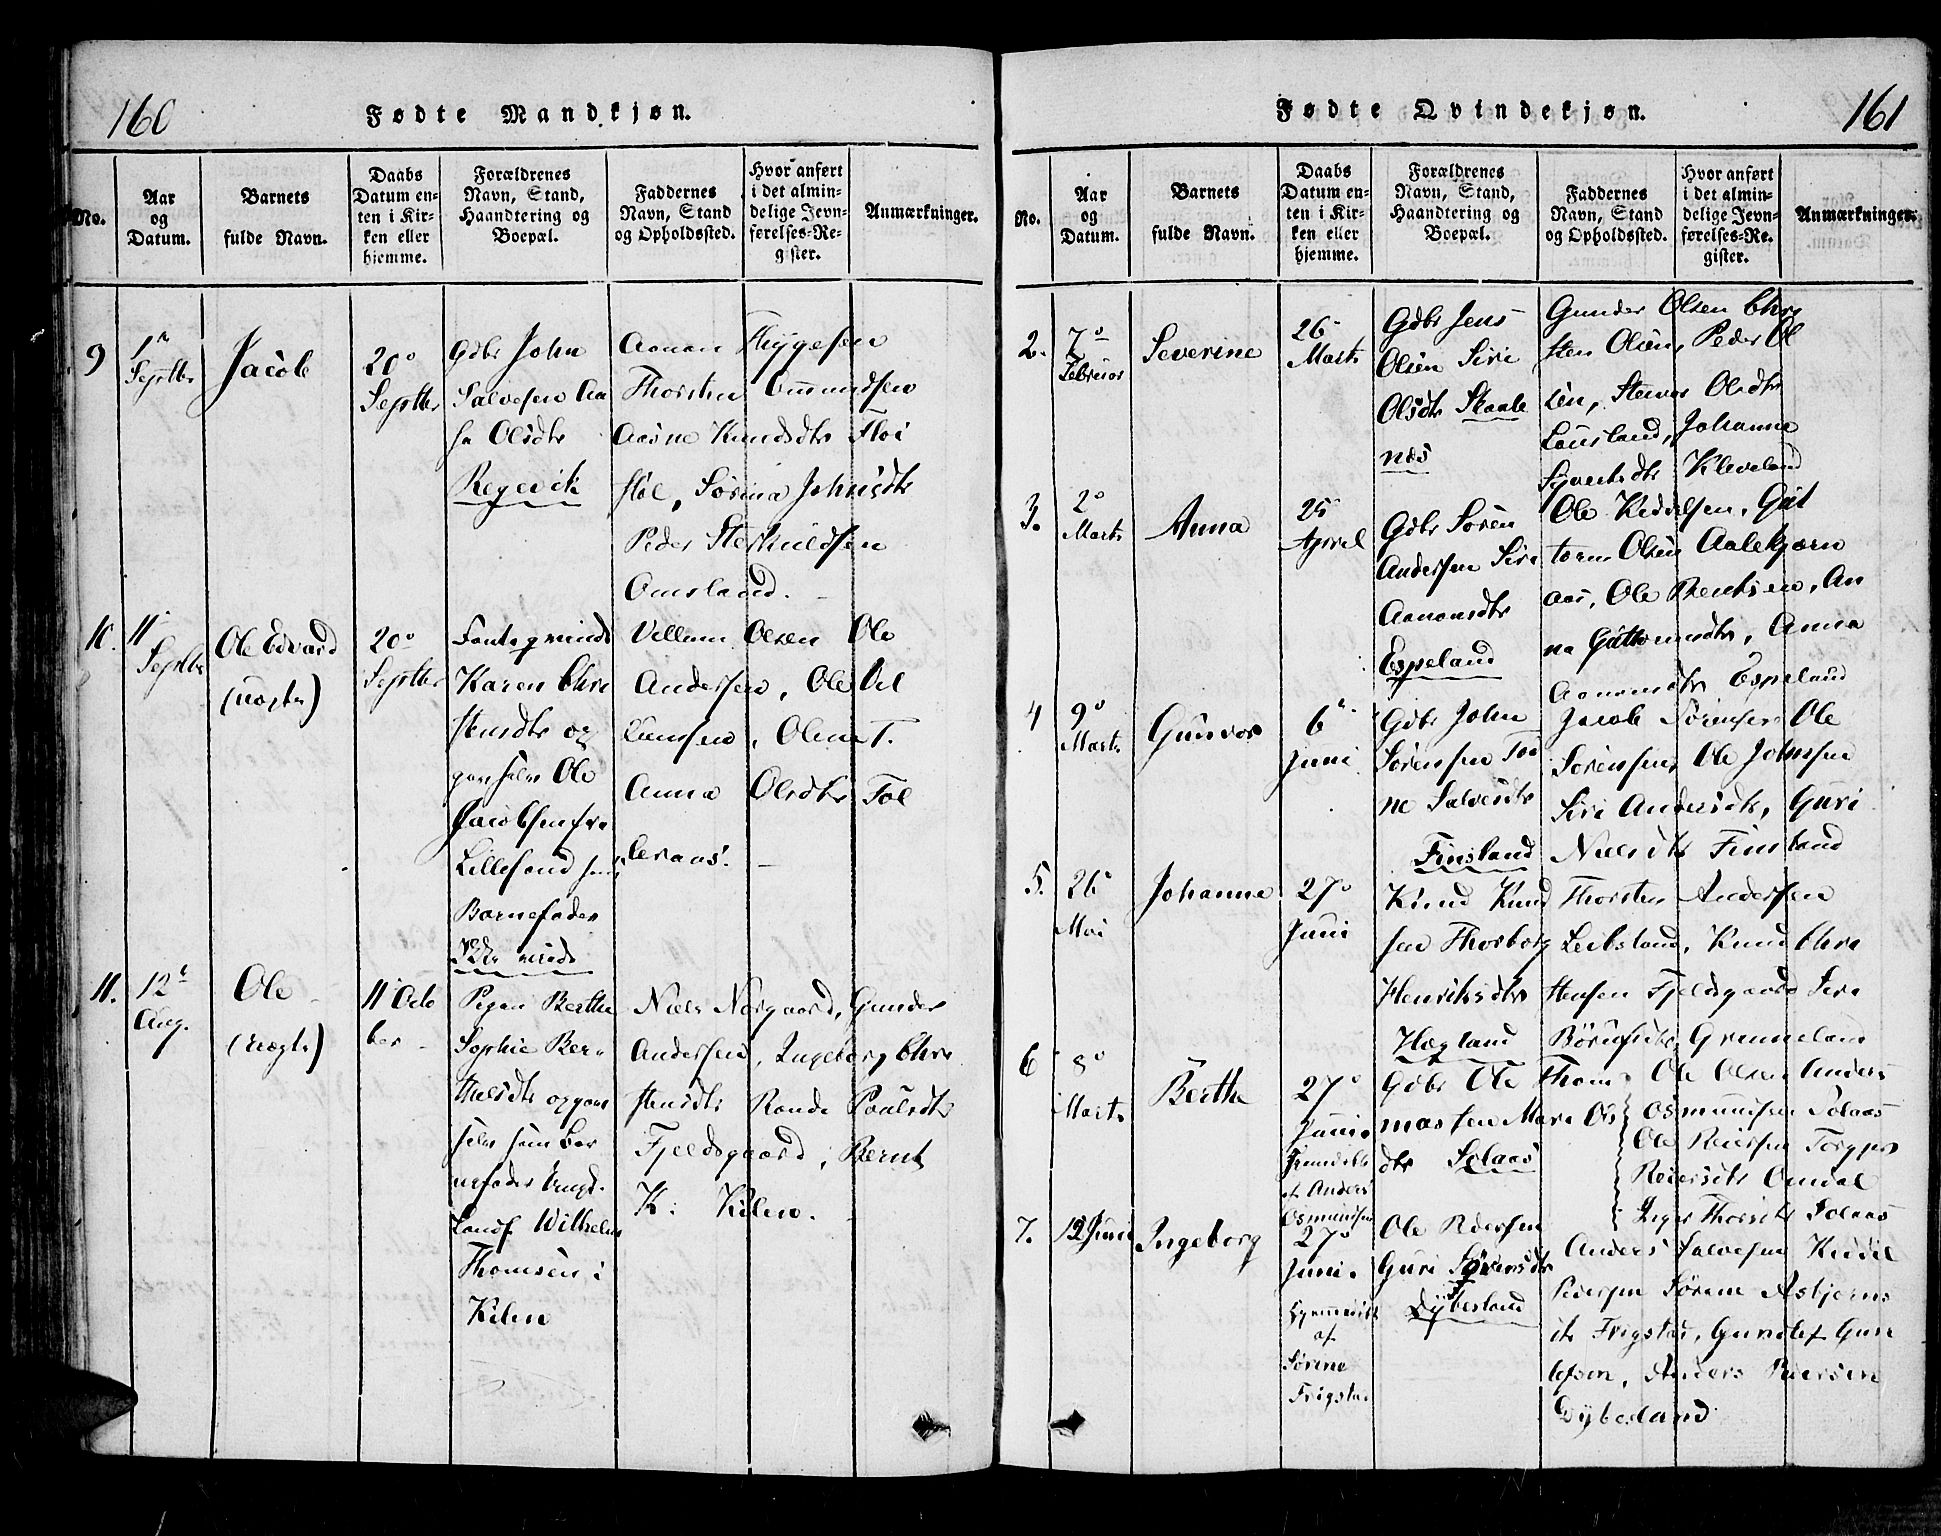 160
Fødte Mandkjøn.
No.
Aar
og
Datum.
Barnets
fulde Navn.
Daabs
Datum en-
ten i Kir-
ken eller
hjemme.
Forældrenes
Navn, Stand,
Haandtering og
Boepæl.
Faddernes
Navn, Stand
og Opholdssted.
Hvor anført
i det almin-
delige Jevn-
førelses-Re-
gister.
Anmærkninger.
9
1
Septbr
Jacob
20
Septbr
Gdbr John
Salvesen Aa
sa Olsdtr
Regevik
Aanon Thygesen
Thorsten Omundsen
Aasne Knudsdtr Floi
støl, Sørina Johnsdtr
Peder
Omsland.
10.
11
Septbr
Ole Edvard
(uægte)
20
Septbr
Karen Chri
stensdtr og
Ole
Jacobsen fra
Lillesand
Barnefader
Villum Olsen Ole
Andersen, Ole
Anna Olsdtr
11.
12
Aug.
Ole
(uægte)
11 Octo
ber
Pigen Berthe
Sophie Ber
thelsdtr og
som Bar
nefader
Wilhelm
Thomsen i
Kilen
Niels Norgaard, Gunder
Andersen, Ingeborg Chri
stensdtr Rande Paulsdtr
Fjeldsgaard, Bernt
K. Kilen.
161
Fødte Qvindekjøn.
No.
Aar
og
Datum.
Barnets
fulde Navn.
Daabs
Datum en-
ten i Kir-
ken eller
hjemme.
Forældrenes
Navn, Stand,
Haandtering og
Boepæl.
Faddernes
Navn, Stand
og Opholdssted.
Hvor anført
i det almin-
delige Jevn-
førelses-Re-
gister.
Anmærkninger.
2.
7
Februar
Severine
26
Marts
Gdbr Jens
Olsen Siri
Olsdtr Skaale
næs
Gunder Olsen Chri
sten Olsen, Peder Ol
sen, Olsdtr
Lausland, Johanne
Kleveland
3.
2
Marts
Anna
25
April
Gdbr Søren
Andersen Siri
Aanonsdtr
Espeland
Ole Kiddelsen, Gut
torm Olsen Aalekjærn
aas, Ole Berntsen, An
na Guttormsdtr, Anna
Aanonsdtr Espeland
4
9
Marts
Gunvor
6
Juni
Gdbr John
Sørensen To
ne Salvesdtr
Finsland
Jacob Sørensen Ole
Sørensen, Ole Johnsen
Siri Andersdtr, Guri
Nielsdtr Finsland
5.
26
Mai
Johanne
27
Juni
Knud Knud
sen Thorborg
Henriksdtr
Hægland
Thorsten Andersen
Leibsland, Knud Chri
stensen Fjeldsgaard Siri
Grundeland
6
8
Marts
Berthe
27
Juni
af Anders
Osmundsen
Gdbr Ole Thom
massen Mari Ols
dtr Solaas
Ole Olsen Anders
Osmundsen Solaas
Ole Reiersen Torgper
Reiersdtr Omdal
Inger Thorsdtr Solaas
7.
12 Juni
Ingeborg
27
Juni.
Hjemmedøbt
af
Sørine
Frigsta.
Ole Pedersen
Guri Sørensdtr
Dybesland
Anders Salvesen Kiddil
Pedersen Sørine Asbjørns
dtr Frigstad, Gunlef Gun
lefsen, Anders Reiersen
Dybesland